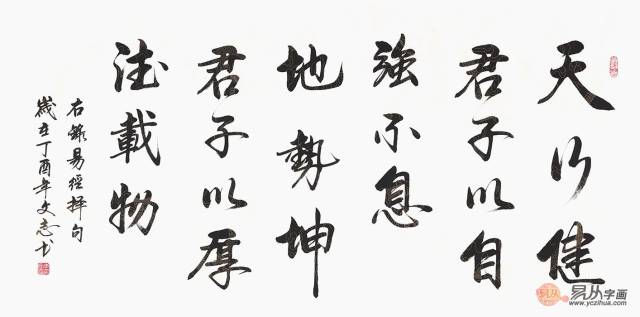 天行健
君子以自
強不息
地勢坤
君子以厚
德載物
右錄易經擇句
歲在丁酉年文志书
易从字画
www.yczihua.com